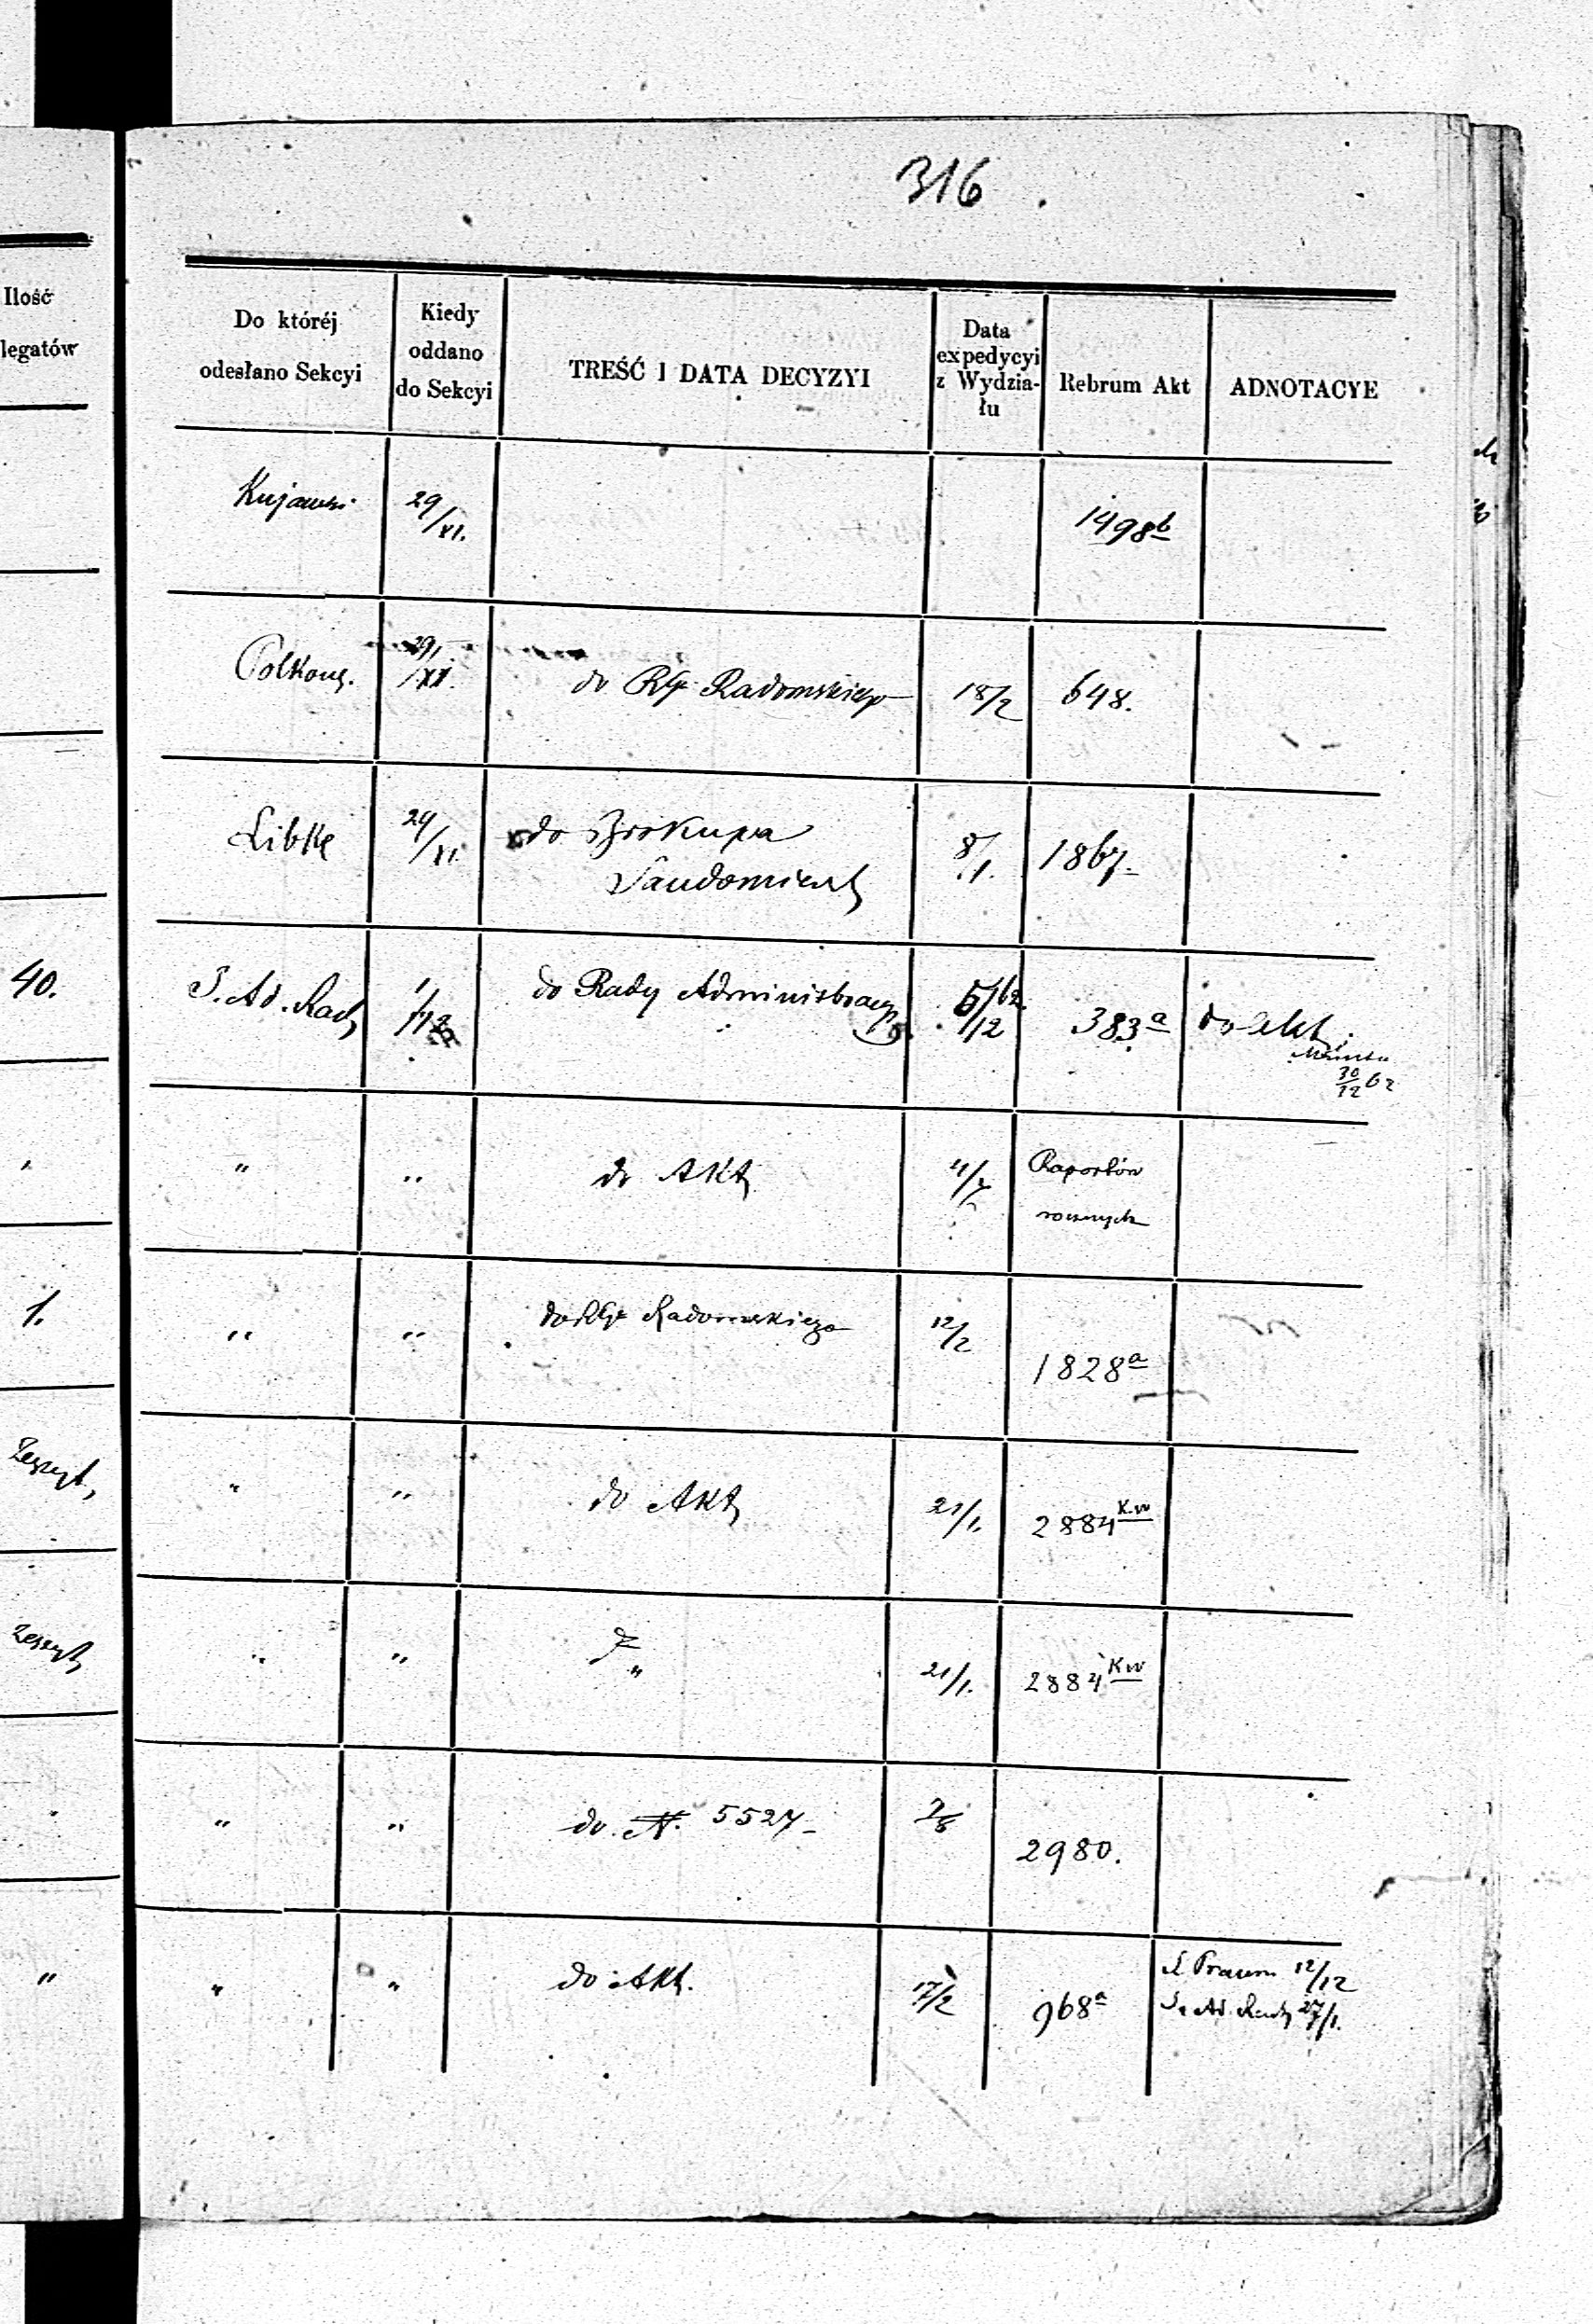 316
Ilość
legatów
Do któréj
odesłano Sekcyi
Kiedy
oddano
do Sekcyi
TREŚĆ I DATA DECYZYI
Data
expedycyi
z Wydzia-
łu
Rebrum Akt
ADNOTACYE
Kujawski 29/XI. 1498 b
29/XI. do RG Radomskiego 18/2 648.
Libke 29/XI. do Biskupa 8/1. 1867.
Sandomiersk
40. S. Ad. Rady 1/12 do Rady Administracyj 5/12 62. 383 a do Akt
30/12 62
" " do Akt Raportów
rocznych
1. " " do RG Radomskiego 12/2
1828 a
Zeszyt " " do Akt 21/1. 2884 Kw
Zeszyt " " " 21/1. 2884 Kw
" " do N. 5527
2980.
" " " do Akt. 17/2 968 a S. Prawn 12/12
S. Ad. Rady 27/1.